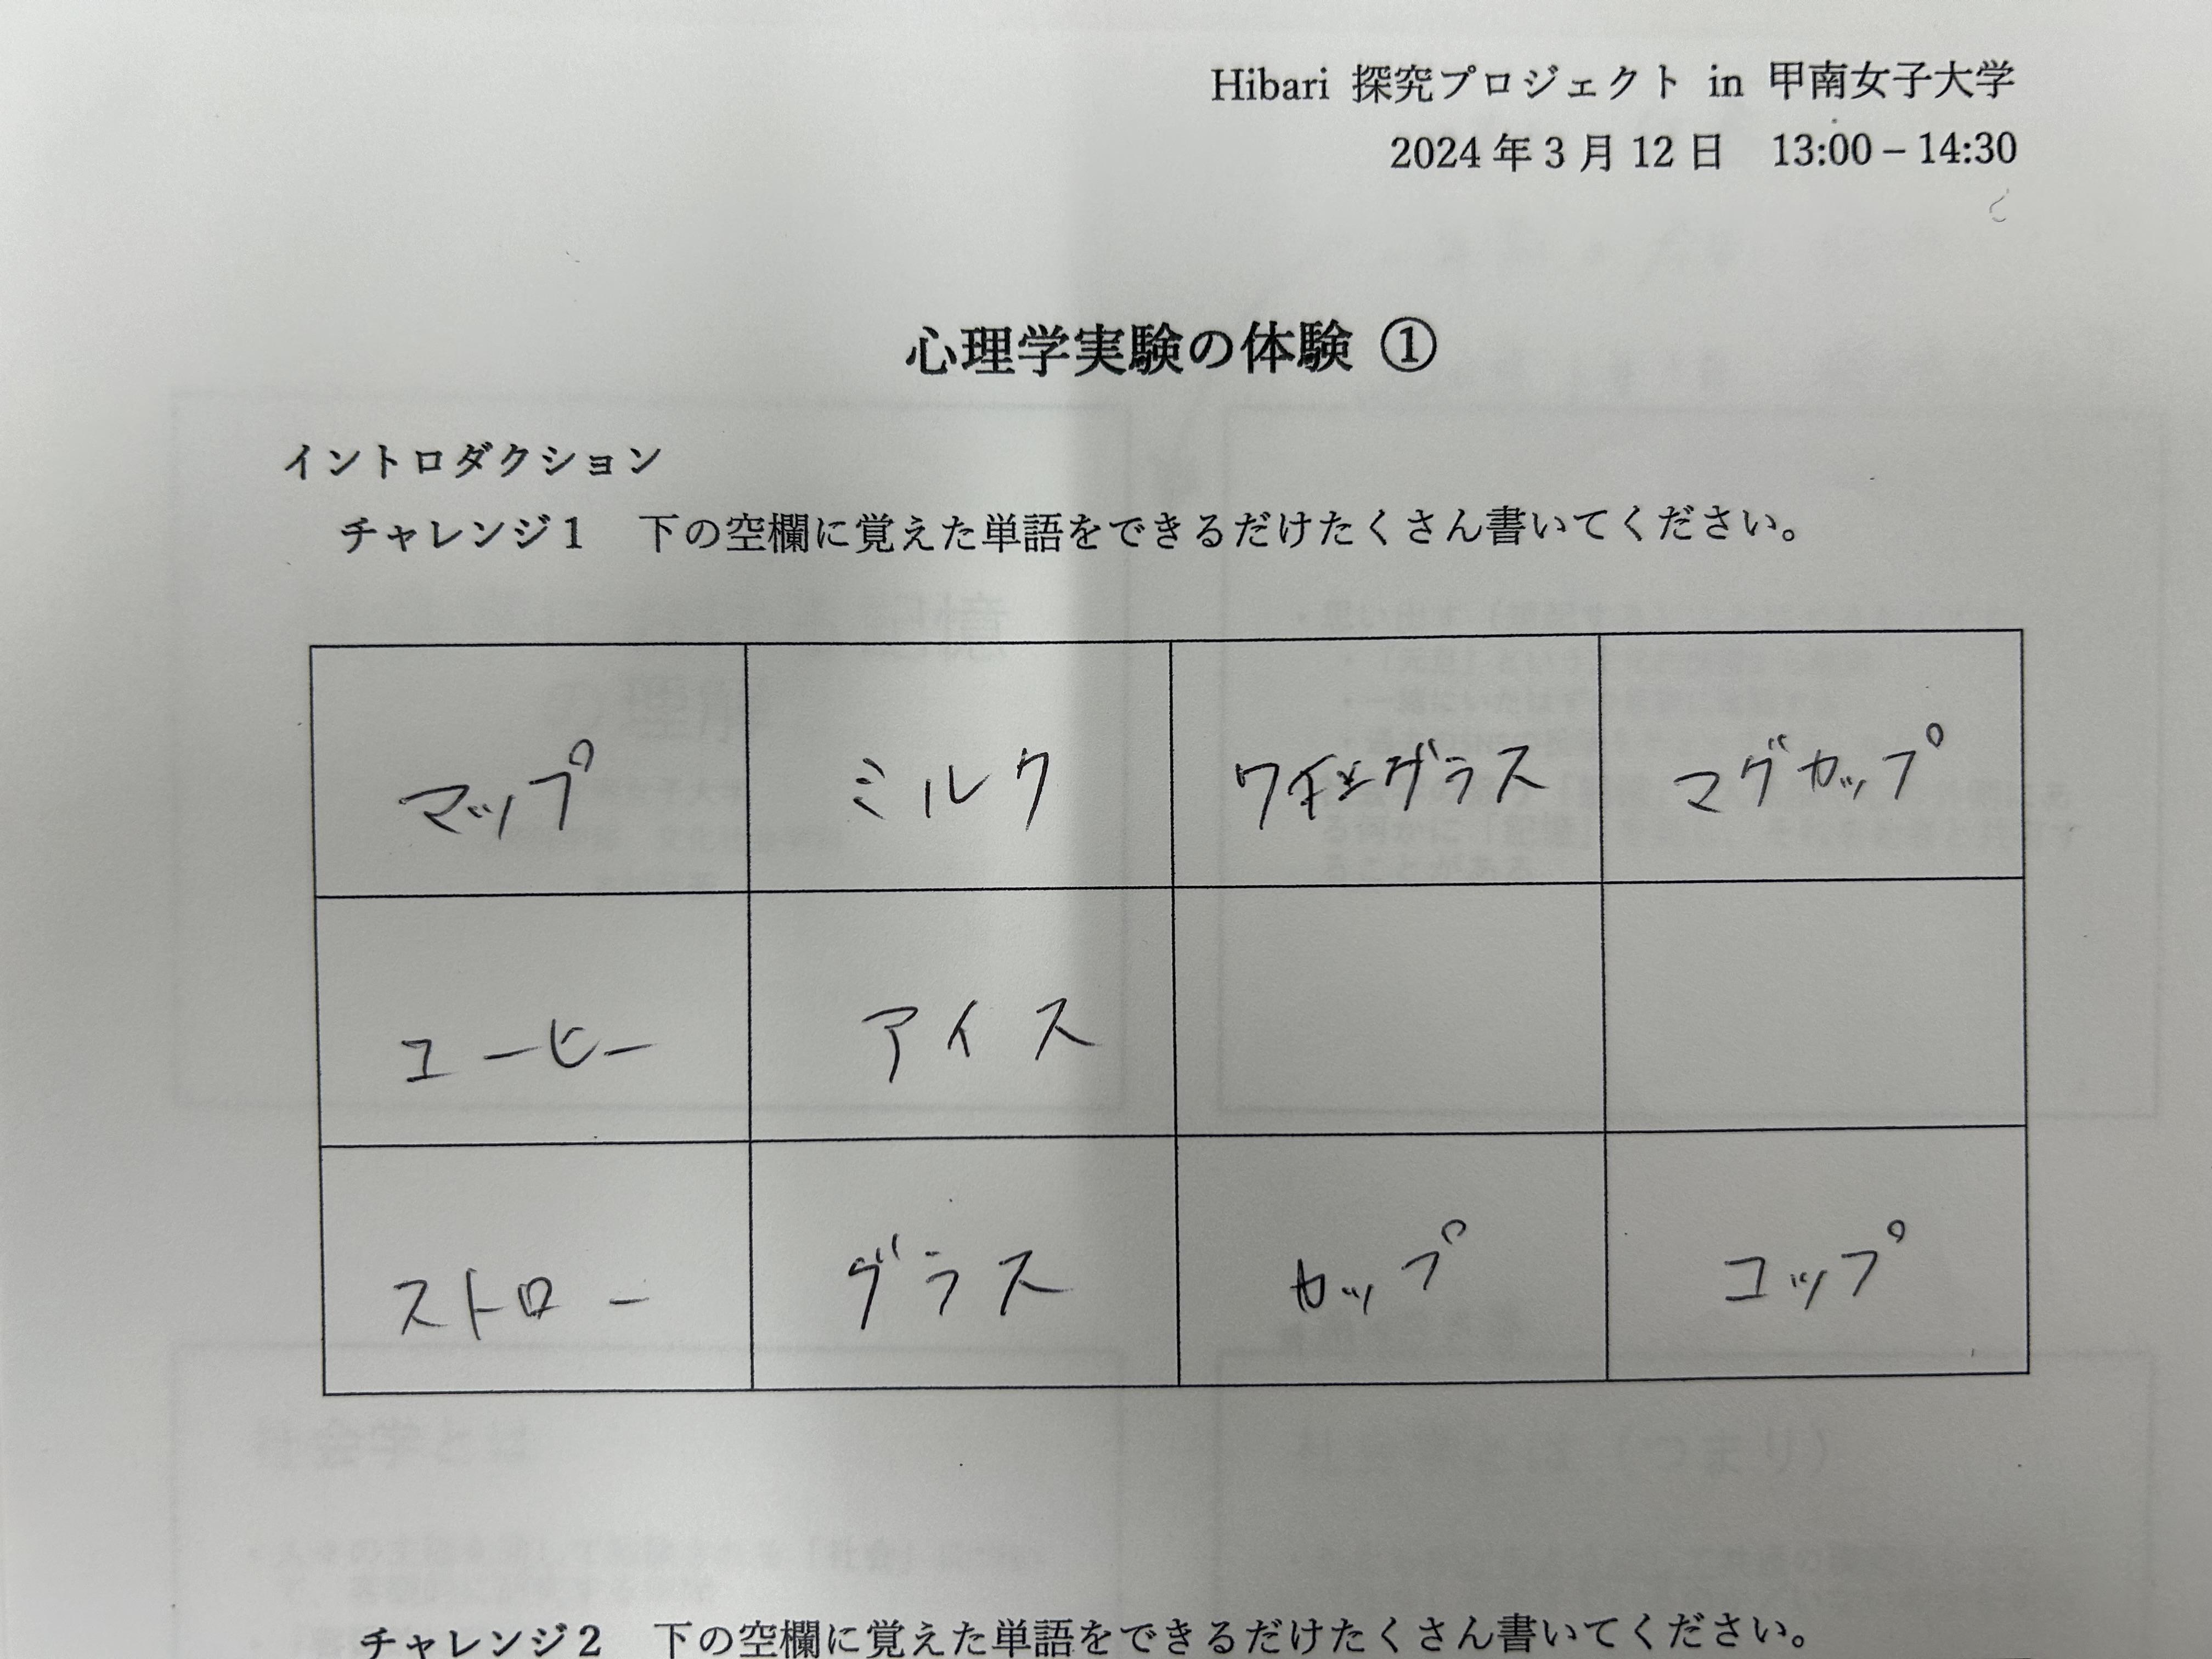 Hibari 探究プロジェクト in 甲南女子大学
2024年3月12日　13:00 – 14:30
心理学実験の体験 ①
イントロダクション
チャレンジ1　下の空欄に覚えた単語をできるだけたくさん書いてください。
マップ　ミルク　ワイングラス　マグカップ
コーヒー　アイス
ストロー　グラス　カップ　コップ
チャレンジ2　下の空欄に覚えた単語をできるだけたくさん書いてください。